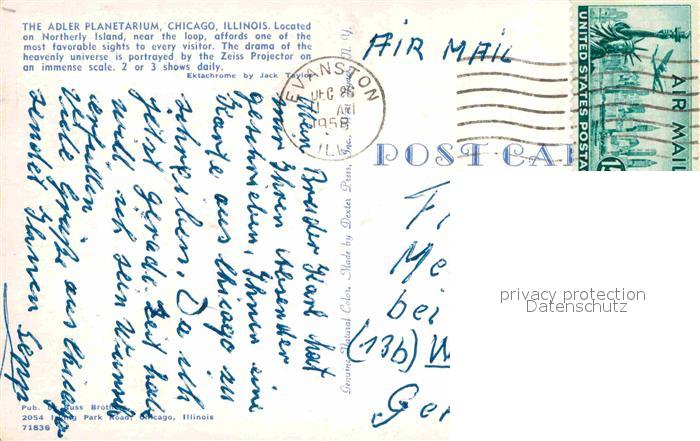 THE ADLER PLANETARIUM, CHICAGO, ILLINOIS. Located
on Northerly Island, near the loop, affords one of the
most favorable sights to every visitor. The drama of the
heavenly universe is portrayed by the Zeiss Projector on
an immense scale. 2 or 3 shows daily.
Ektachrome by Jack Taylor
Mein Bruder Karl hat
mir Ihren Absender
geschrieben, Ihnen eine
Karte aus Chicago zu
schreiben. Da ich
jetzt gerade Zeit habe
will ich sein Wunsch
erfüllen
Viele Grüße aus Chicago
sendet Ihnen Sepp
Pub. by Russ Brothers,
2054 Irving Park Road, Chicago, Illinois
71836
Genuine Natural Color. Made by Dexter Press, Inc. N. Y.
AIR MAIL
EVANSTON
DEC 26
AM
1958
ILL
UNITED STATES POSTA
AIR MAIL
POST CA
bei
(13b) W
Ger
privacy protection
Datenschutz